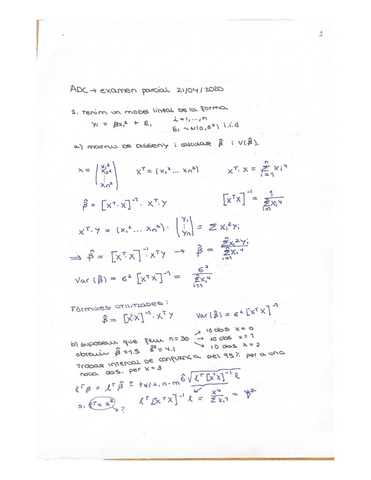 1
ADC → examen parcial 21/04/2020
1. Tenim un model lineal de la forma
yi = βxi² + εi    i=1,...,n
εi ~ N(0,σ²) i.i.d
a) matriu de disseny i calcular β̂ i V(β̂).
X = (x1² x2² ⋮ xn²)    Xᵀ = (x1² ... xn²)    Xᵀ·X = Σ xi⁴ i=1 n
β̂ = [Xᵀ·X]⁻¹ · Xᵀ·Y    [Xᵀ X]⁻¹ = 1 / Σ xi⁴ i=1
Xᵀ·Y = (x1² ... xn²) · (y1 ⋮ yn) = Σ xi² yi
⇒ β̂ = [XᵀX]⁻¹ · XᵀY → β̂ = Σ xi² yi / Σ xi⁴
Var (β̂) = σ² [XᵀX]⁻¹ = σ² / Σ xi⁴ i=1
Fórmules utilitzades:
β̂ = [X·X]⁻¹ · Xᵀ Y    Var (β̂) = σ² [XᵀX]⁻¹
b) suposem que fem n=30 → 10 obs x=0
→ 10 obs x=1
→ 10 obs x=2
obtenim β̂=1.5 σ̂²=4.1
Trobar interval de confiança del 95% per a una
nova obs. per x=3
ℓᵀβ = ℓᵀβ̂ ± tα/2, n-m σ̂ √ℓᵀ[XᵀX]⁻¹ℓ
si ℓᵀ = x² ?    ℓᵀ[XᵀX]⁻¹ ℓ = x⁴ / Σ xi⁴ =